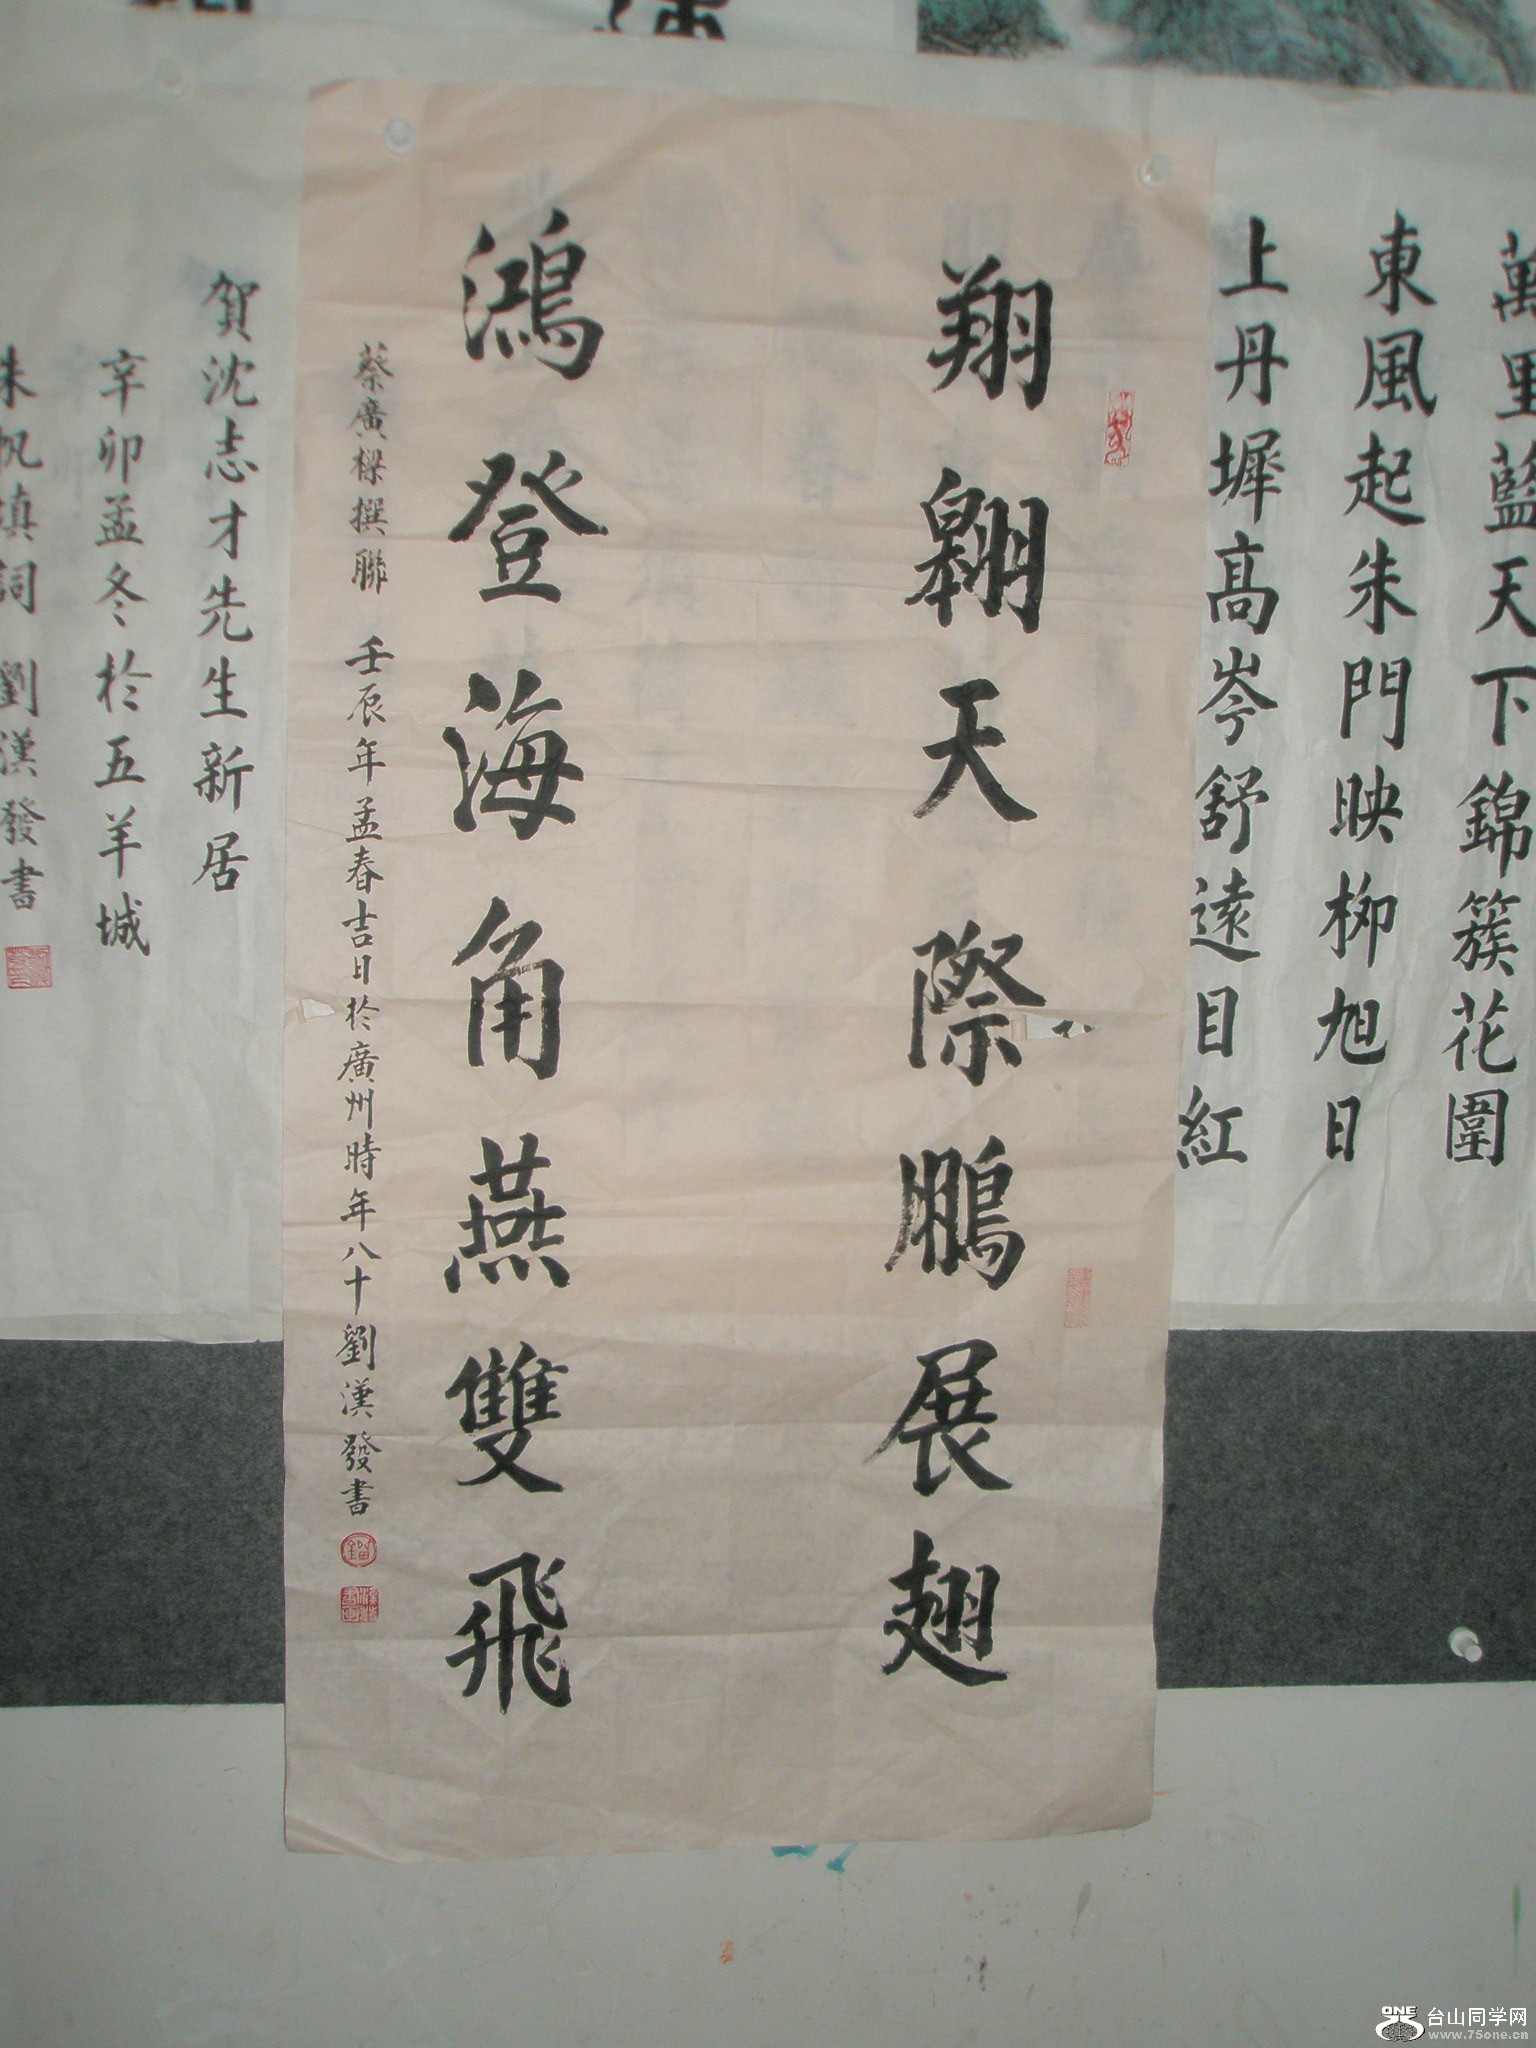 萬里藍天下錦簇花圍
東風起朱門映柳旭日
上丹墀高岑舒遠目紅
翔翱天際鵬展翅
鴻登海角燕雙飛
蔡廣樑撰聯 壬辰年孟春吉日於廣州時年八十劉漢發書
賀沈志才先生新居
辛卯孟冬於五羊城
朱帆填詞 劉漢發書
ONE 台山同学网
www.75one.cn